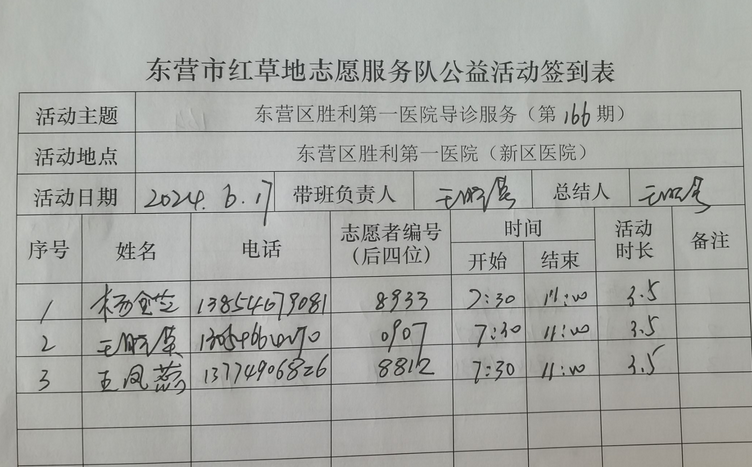 东营市红草地志愿服务队公益活动签到表
活动主题 东营区胜利第一医院导诊服务（第166期）
活动地点 东营区胜利第一医院（新区医院）
活动日期 2024.6.17 带班负责人 王 总结人 王
序号 姓名 电话 志愿者编号（后四位） 时间 开始 结束 活动时长 备注
1 杨金 13854679081 8933 7:30 11:00 3.5
2 王 0907 7:30 11:00 3.5
3 王凤 13774906826 8812 7:30 11:00 3.5